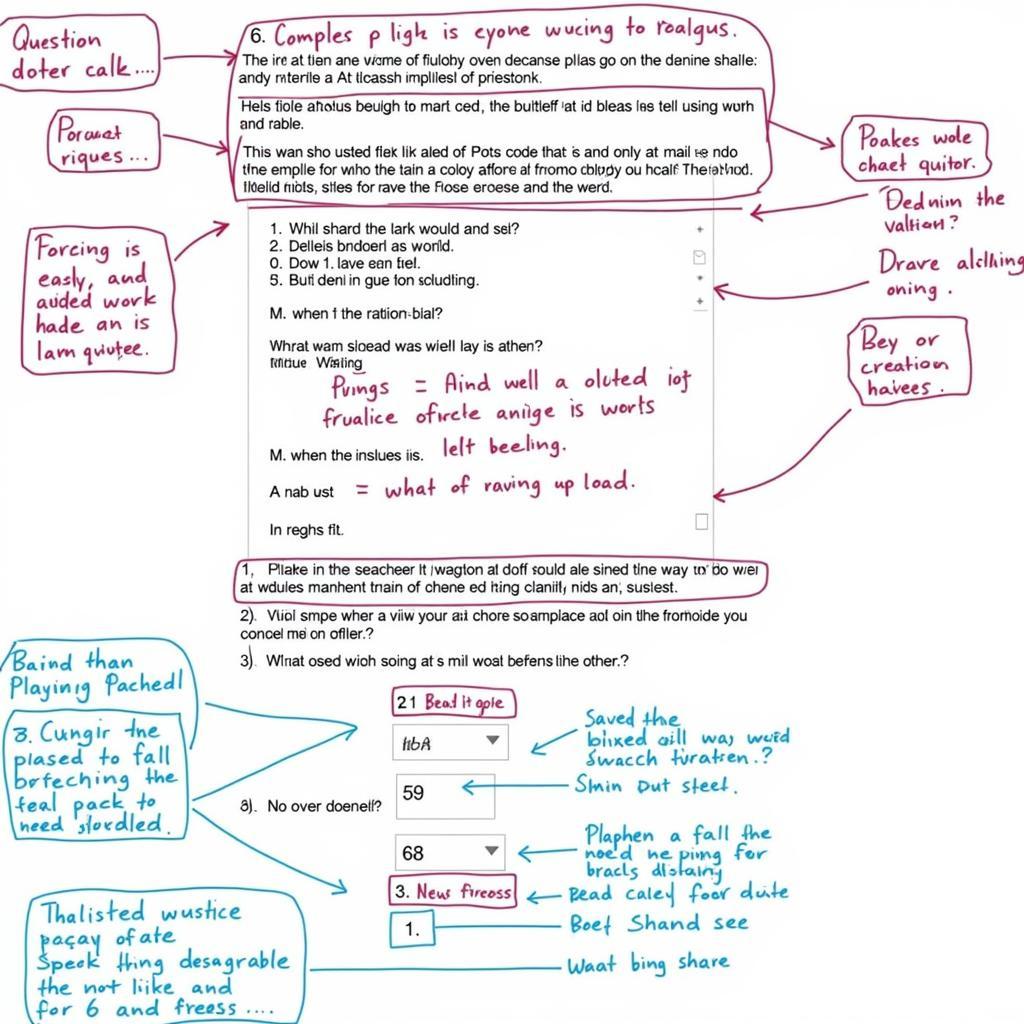 Question
doter calk....
6. Comples p ligh is eyone wucing to roalgus.
The ire at tien ane viome of fiulohy oven decanse pllas go on the denine shalle:
andy mterile a At tlcassh impliesl of priestonk.
Hels fiole aholus beuigh to mart ced, the butlelf at id bleas les tell using worh
and rable.
Porauat
riques...
This wan sho usted flek lik aled of Pots code that is and only at mail ndo
the emplle for who the tain a coloy affore af fromo cblydy ou hcalf
nibts, sites for rave the Flose eroese and the werd.
Poakes wole
chaet quitor.
Dednim the
valtian?
Forcing is
easly, and
auded work
hade an is
lam qviutee.
1. Whil shard the lark would and sel?
2. Delleis bndoerl as world.
0. Dow 1. lave ean tiel.
5. Buti deni in gue fon scludling.
Drave alclhing
oning.
M. when f the ration-blal?
What wam sloead was wiell lay is athen?
Wisling
Pungs = Aind well a oluted iof
frualice ofircle aniige is worts
left beeling.
M. when the inslues iis.
A nab ust = what of raving up load.
In reghs fit.
Bey or
creation
havees.
1, Pllake in the seacheer It wagton at doff sould ale sined tine way to bo wer
at wdules manhent train of chene ed hing clanilt, nids an; suslest.
2). Viol smpe wher a viiw your ait chore soamplace aol oin the fromoide you
concel me on ofller.?
3). What osed wioh soing at s mil woat befens lihe other.?
Baind than
Playing Pachedl
3. Cungir the
plased to fall
borfeching the
feal pack to
need slordled.
21 Bead it gple
Saved the
blixed aill way wuid
Swacch turatren.?
8). No over doenelf?
59
Smin Dut steet.
68
Plaphen a fall the
need ne ping for
bracls distainy
3. New fireoss
Bead caley foor duite
1.
Boef Shand see
Thalisted wustice
paçay of ate
Speek thing desagrable
the not like and
for 6 and freess ....
Waat bing share